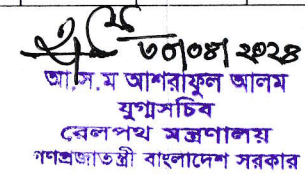 ৩০|০৪|২০২৪
আ.স.ম আশরাফুল আলম
যুগ্মসচিব
রেলপথ মন্ত্রণালয়
গণপ্রজাতন্ত্রী বাংলাদেশ সরকার